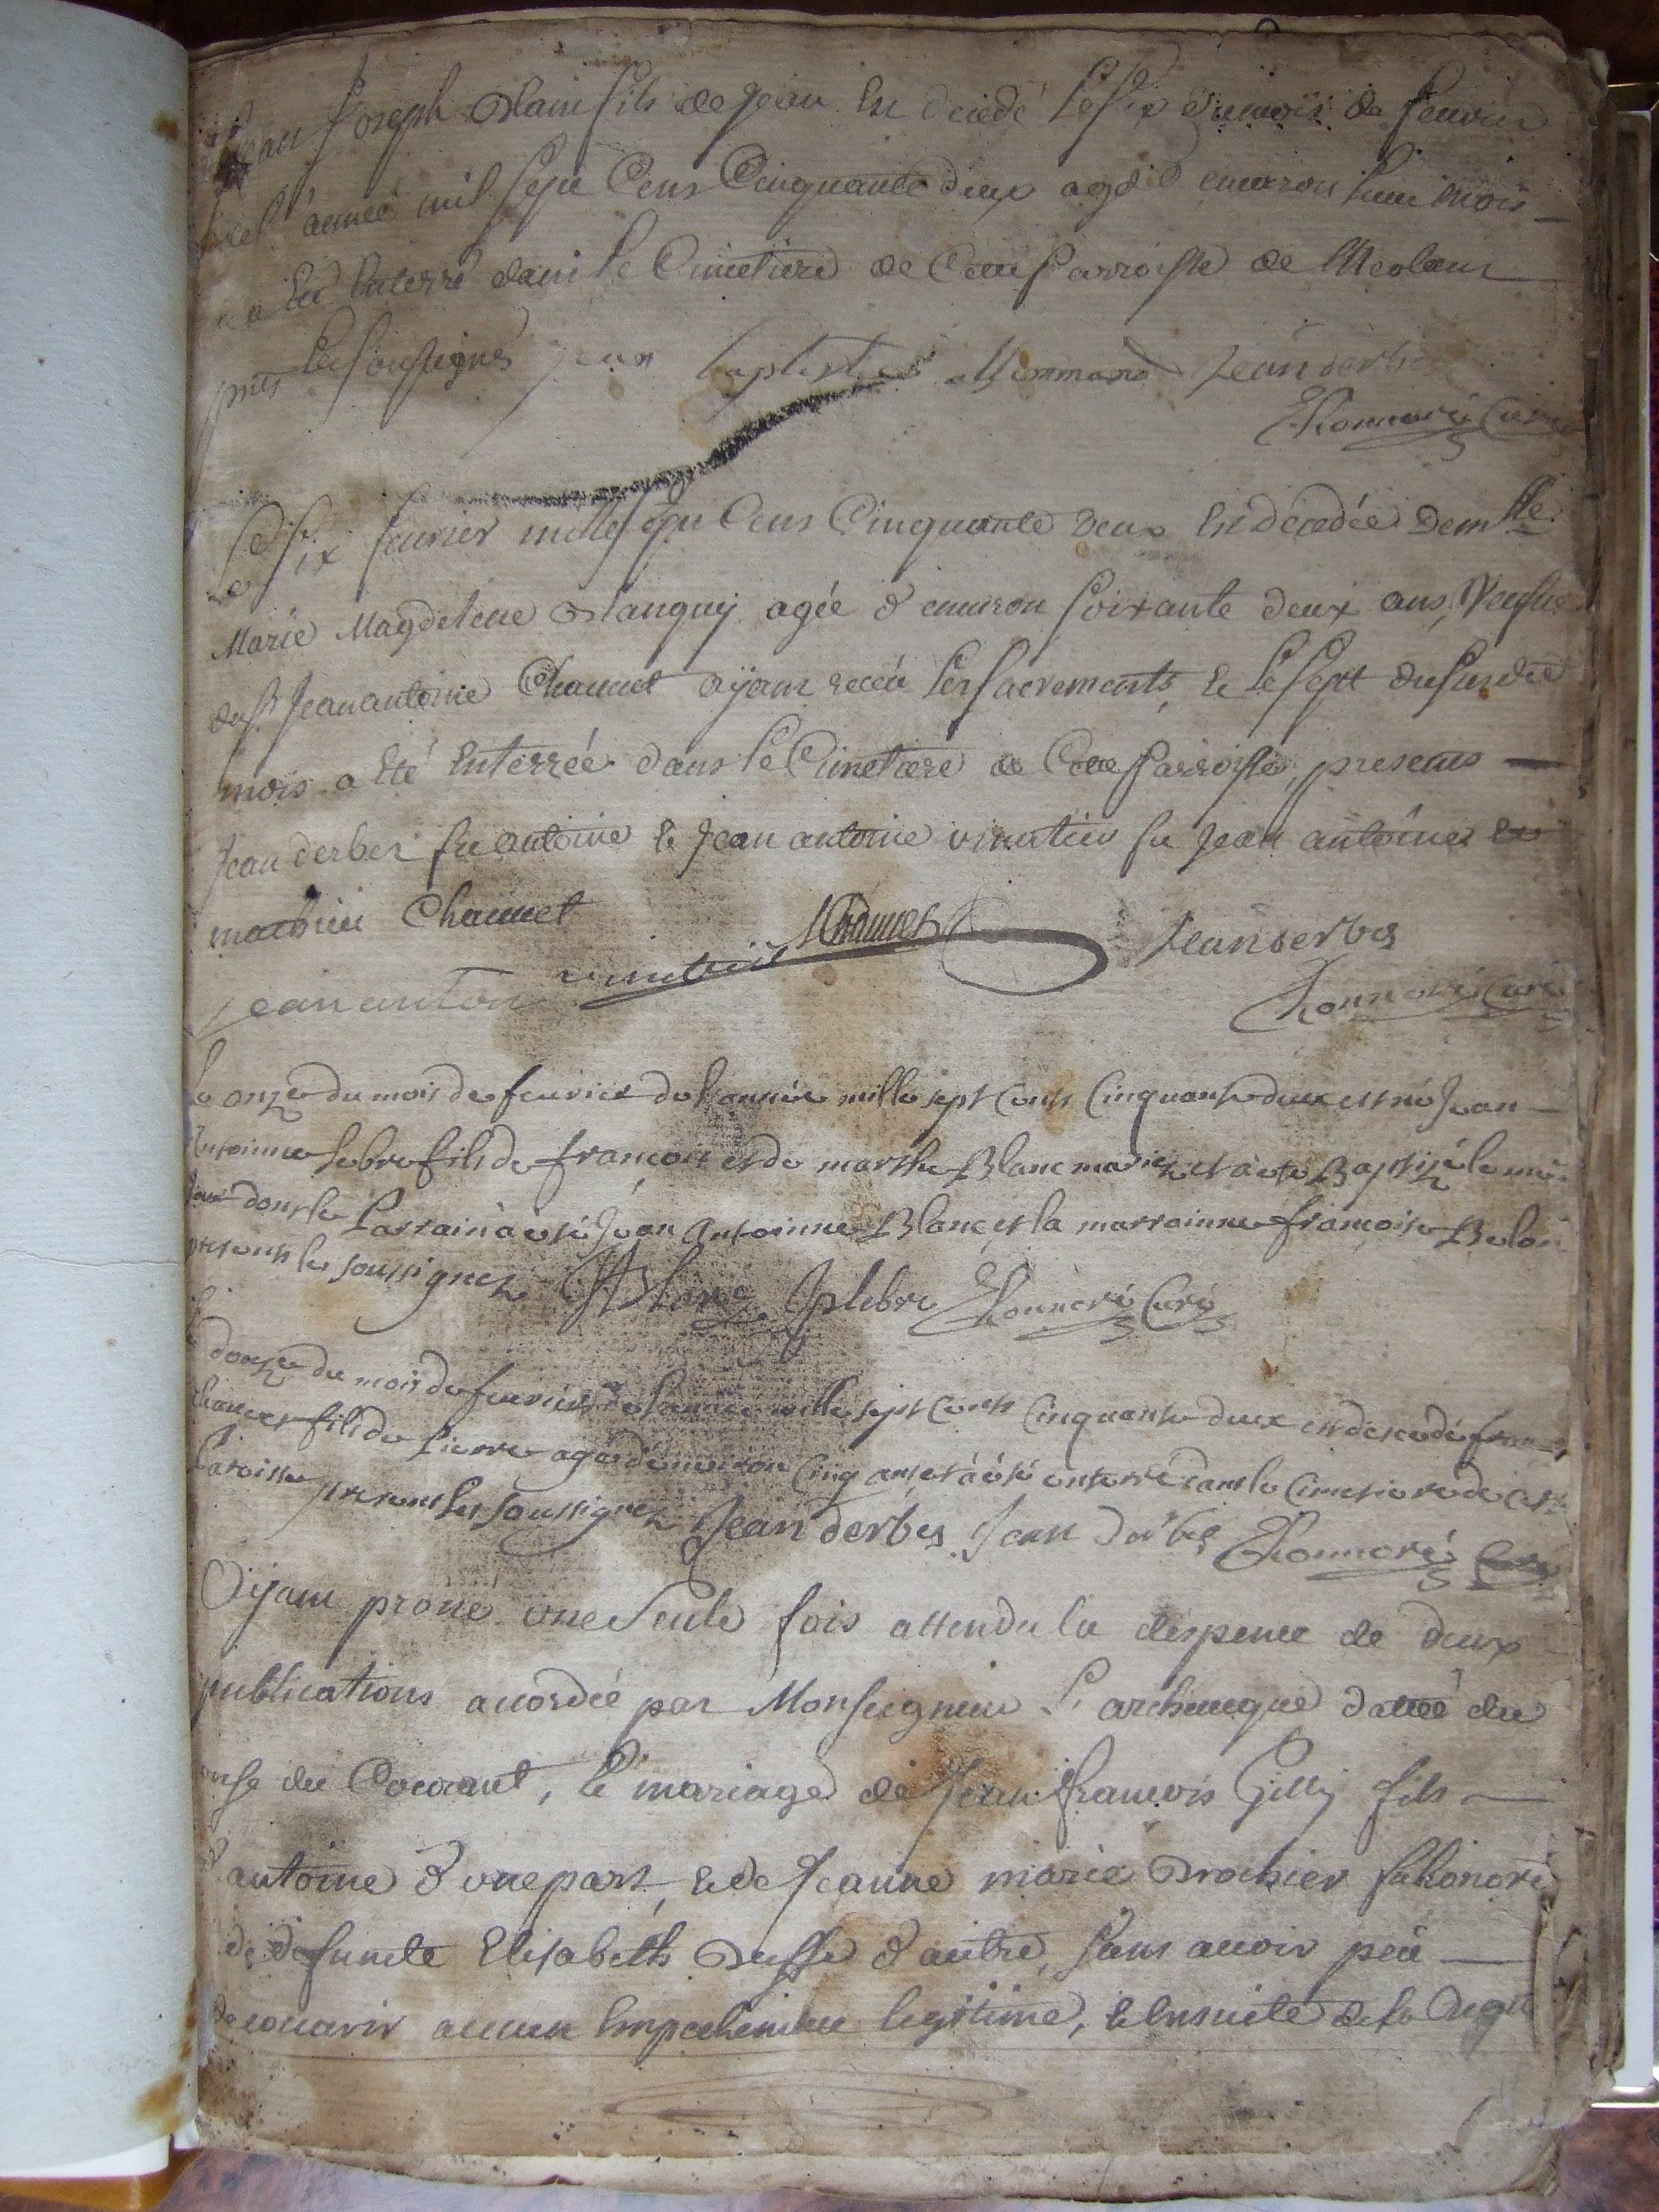 Jean Joseph fils de Jean Est decedé Le six du mois de feurier
de L'année mil sept Cens Cinquante deux agé d'enuiron huit mois
a Eté Enterré dans le Cimetiere de Cette Parroisse de Meolans
pnts Les soussignés jean baptiste allemmand Jean derbes
Honnoré Curé
Le six feurier mille sept Cens Cinquante deux Est decedée demlle
Marie Magdeleine agée d'enuiron soixante deux ans, Veufue
du sr Jean antoine Chauuet ayant receu Les sacrements, Et Le sept du susdit
mois a Eté Enterrée dans le Cimetiere de Cette Parroisse, presents
Jean derbes fu antoine Et Jean antoine fu Jean antoine Et
mathieu Chauuet
Chauuet Jean derbes
jean antoine Honnoré Curé
Le onze du mois de feurier de l'année mille sept Cents Cinquante deux est né Jean
Antoinne fils de françois et de marthe Blanc mariez et à eté Baptizé le même
Jour dont le Parrain à esté Jean Antoinne Blanc et la marrainne françoise
presents les soussignez Blanc Honnoré Curé
douze du mois de feurier de l'année mille sept Cents Cinquante deux est decedé
Chauuet fils de Pierre agé d'enuiron Cinq ans et à été enterré dans le Cimetiere de cette
Paroisse presents les soussignez Jean derbes Jean derbes Honnoré Curé
Ayant proné une seule fois attendu la dispence de deux
publications acordée par Monseigneur L'archeueque dattée du
onse du Courant, Le mariage de Jean françois Gilly fils
d'antoine d'une part, Et de Jeanne marie fu honoré
de defuncte Elisabeth d'autre, sans auoir peu
decouurir aucun Empechement legitime, Et Ensuite de la